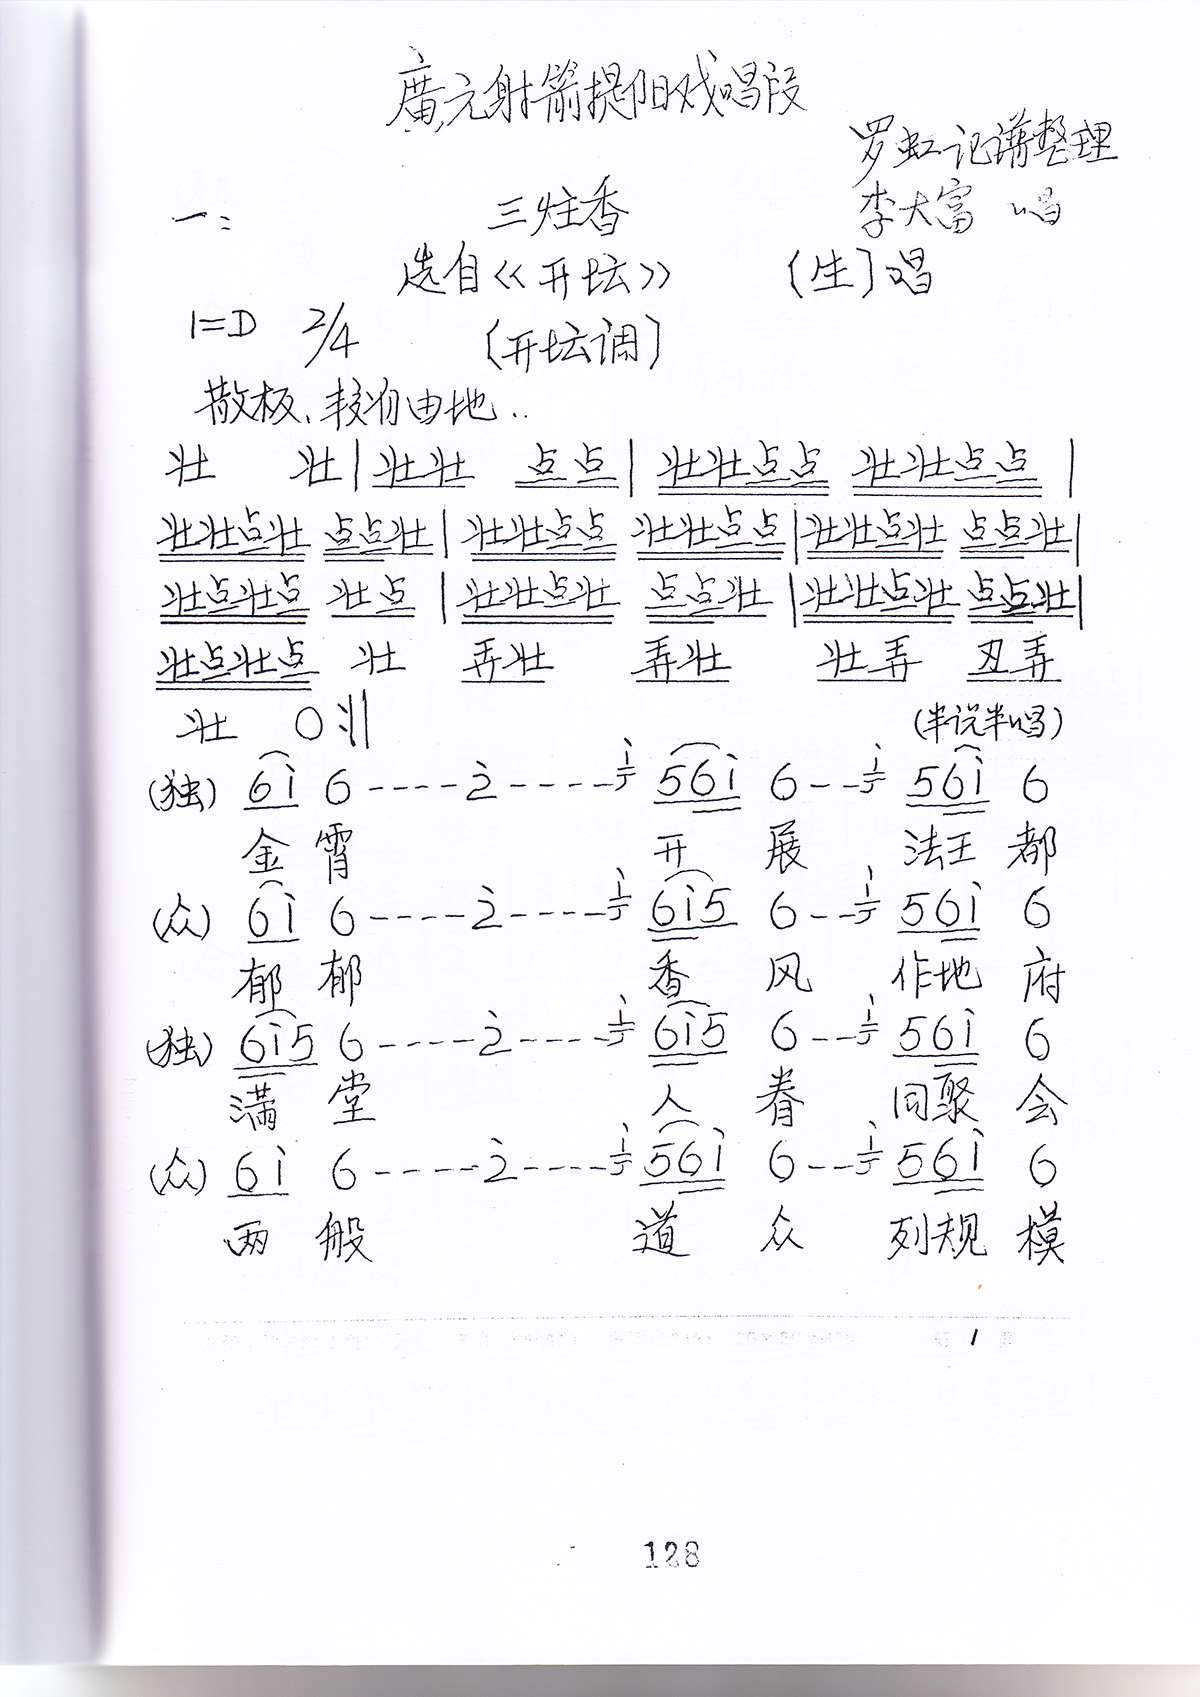 廣元射箭提阳戏唱段
罗虹记谱整理
一: 三炷香 李大富 唱
选自《开坛》 〔生〕唱
1=D 2/4 〔开坛调〕
散板、较自由地..
壮 壮|壮壮 点点|壮壮点点 壮壮点点|
壮壮点壮 点点壮|壮壮点点 壮壮点点|壮壮点壮 点点壮|
壮点壮点 壮点|壮壮点壮 点点壮|壮壮点壮 点点壮|
壮点壮点 壮 弄壮 弄壮 壮弄 丑弄
壮 0 :‖ (半说半唱)
(独) 6i 6----2----i 56i 6--i 56i 6
金霄 开 展 法王 都
(众) 6i 6----2----i 6i5 6--i 56i 6
郁郁 香 风 作地 府
(独) 6i5 6----2----i 6i5 6--i 56i 6
满 堂 人 眷 同聚 会
(众) 6i 6----2----i 56i 6--i 56i 6
两 般 道 众 列规 模
1
128